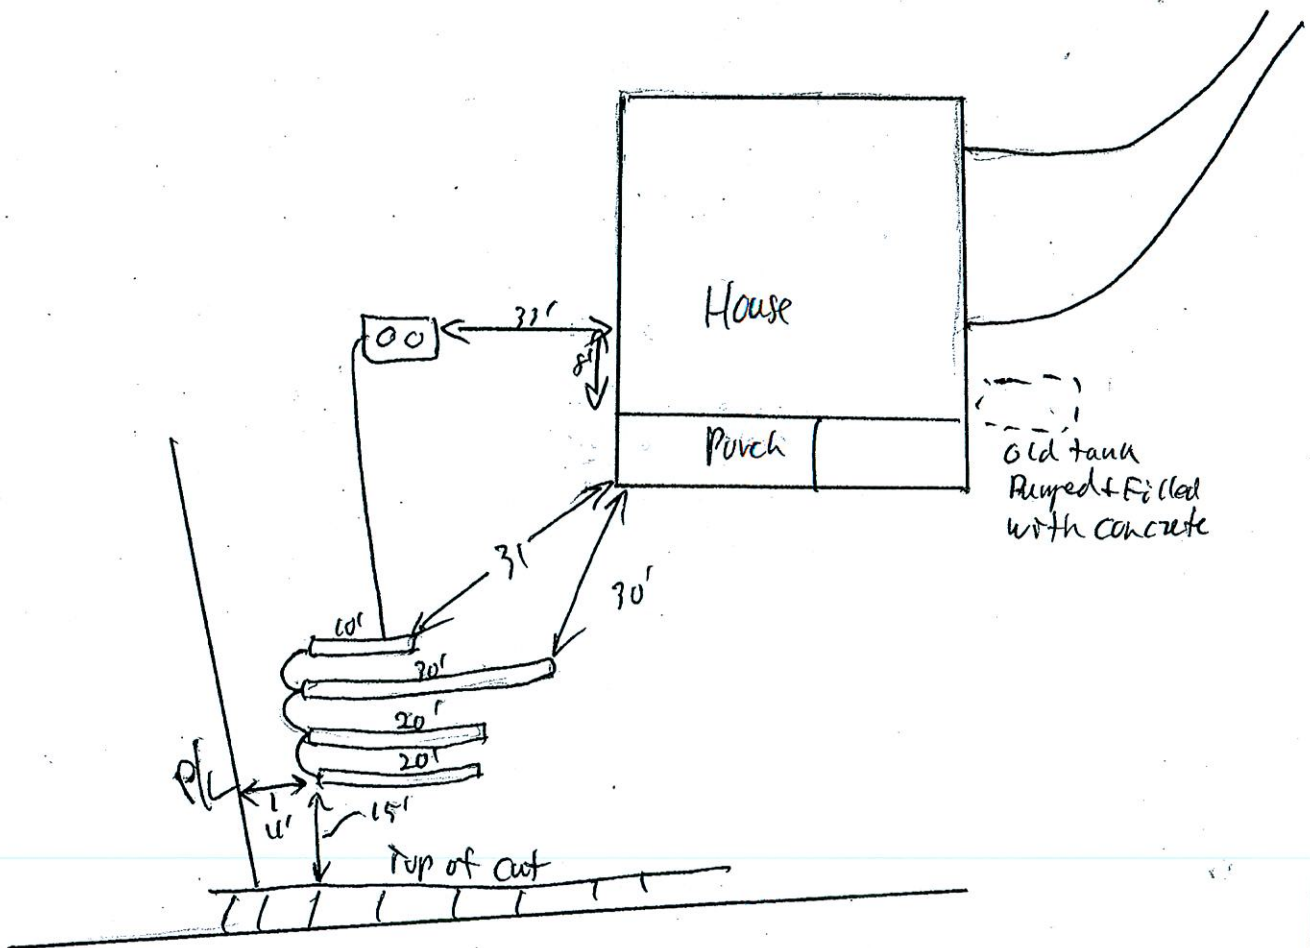 House
33'
8'
Porch
Old tank
Pumped + Filled
with concrete
31
30'
10'
30'
20'
20'
P/L
15'
Top of Cut